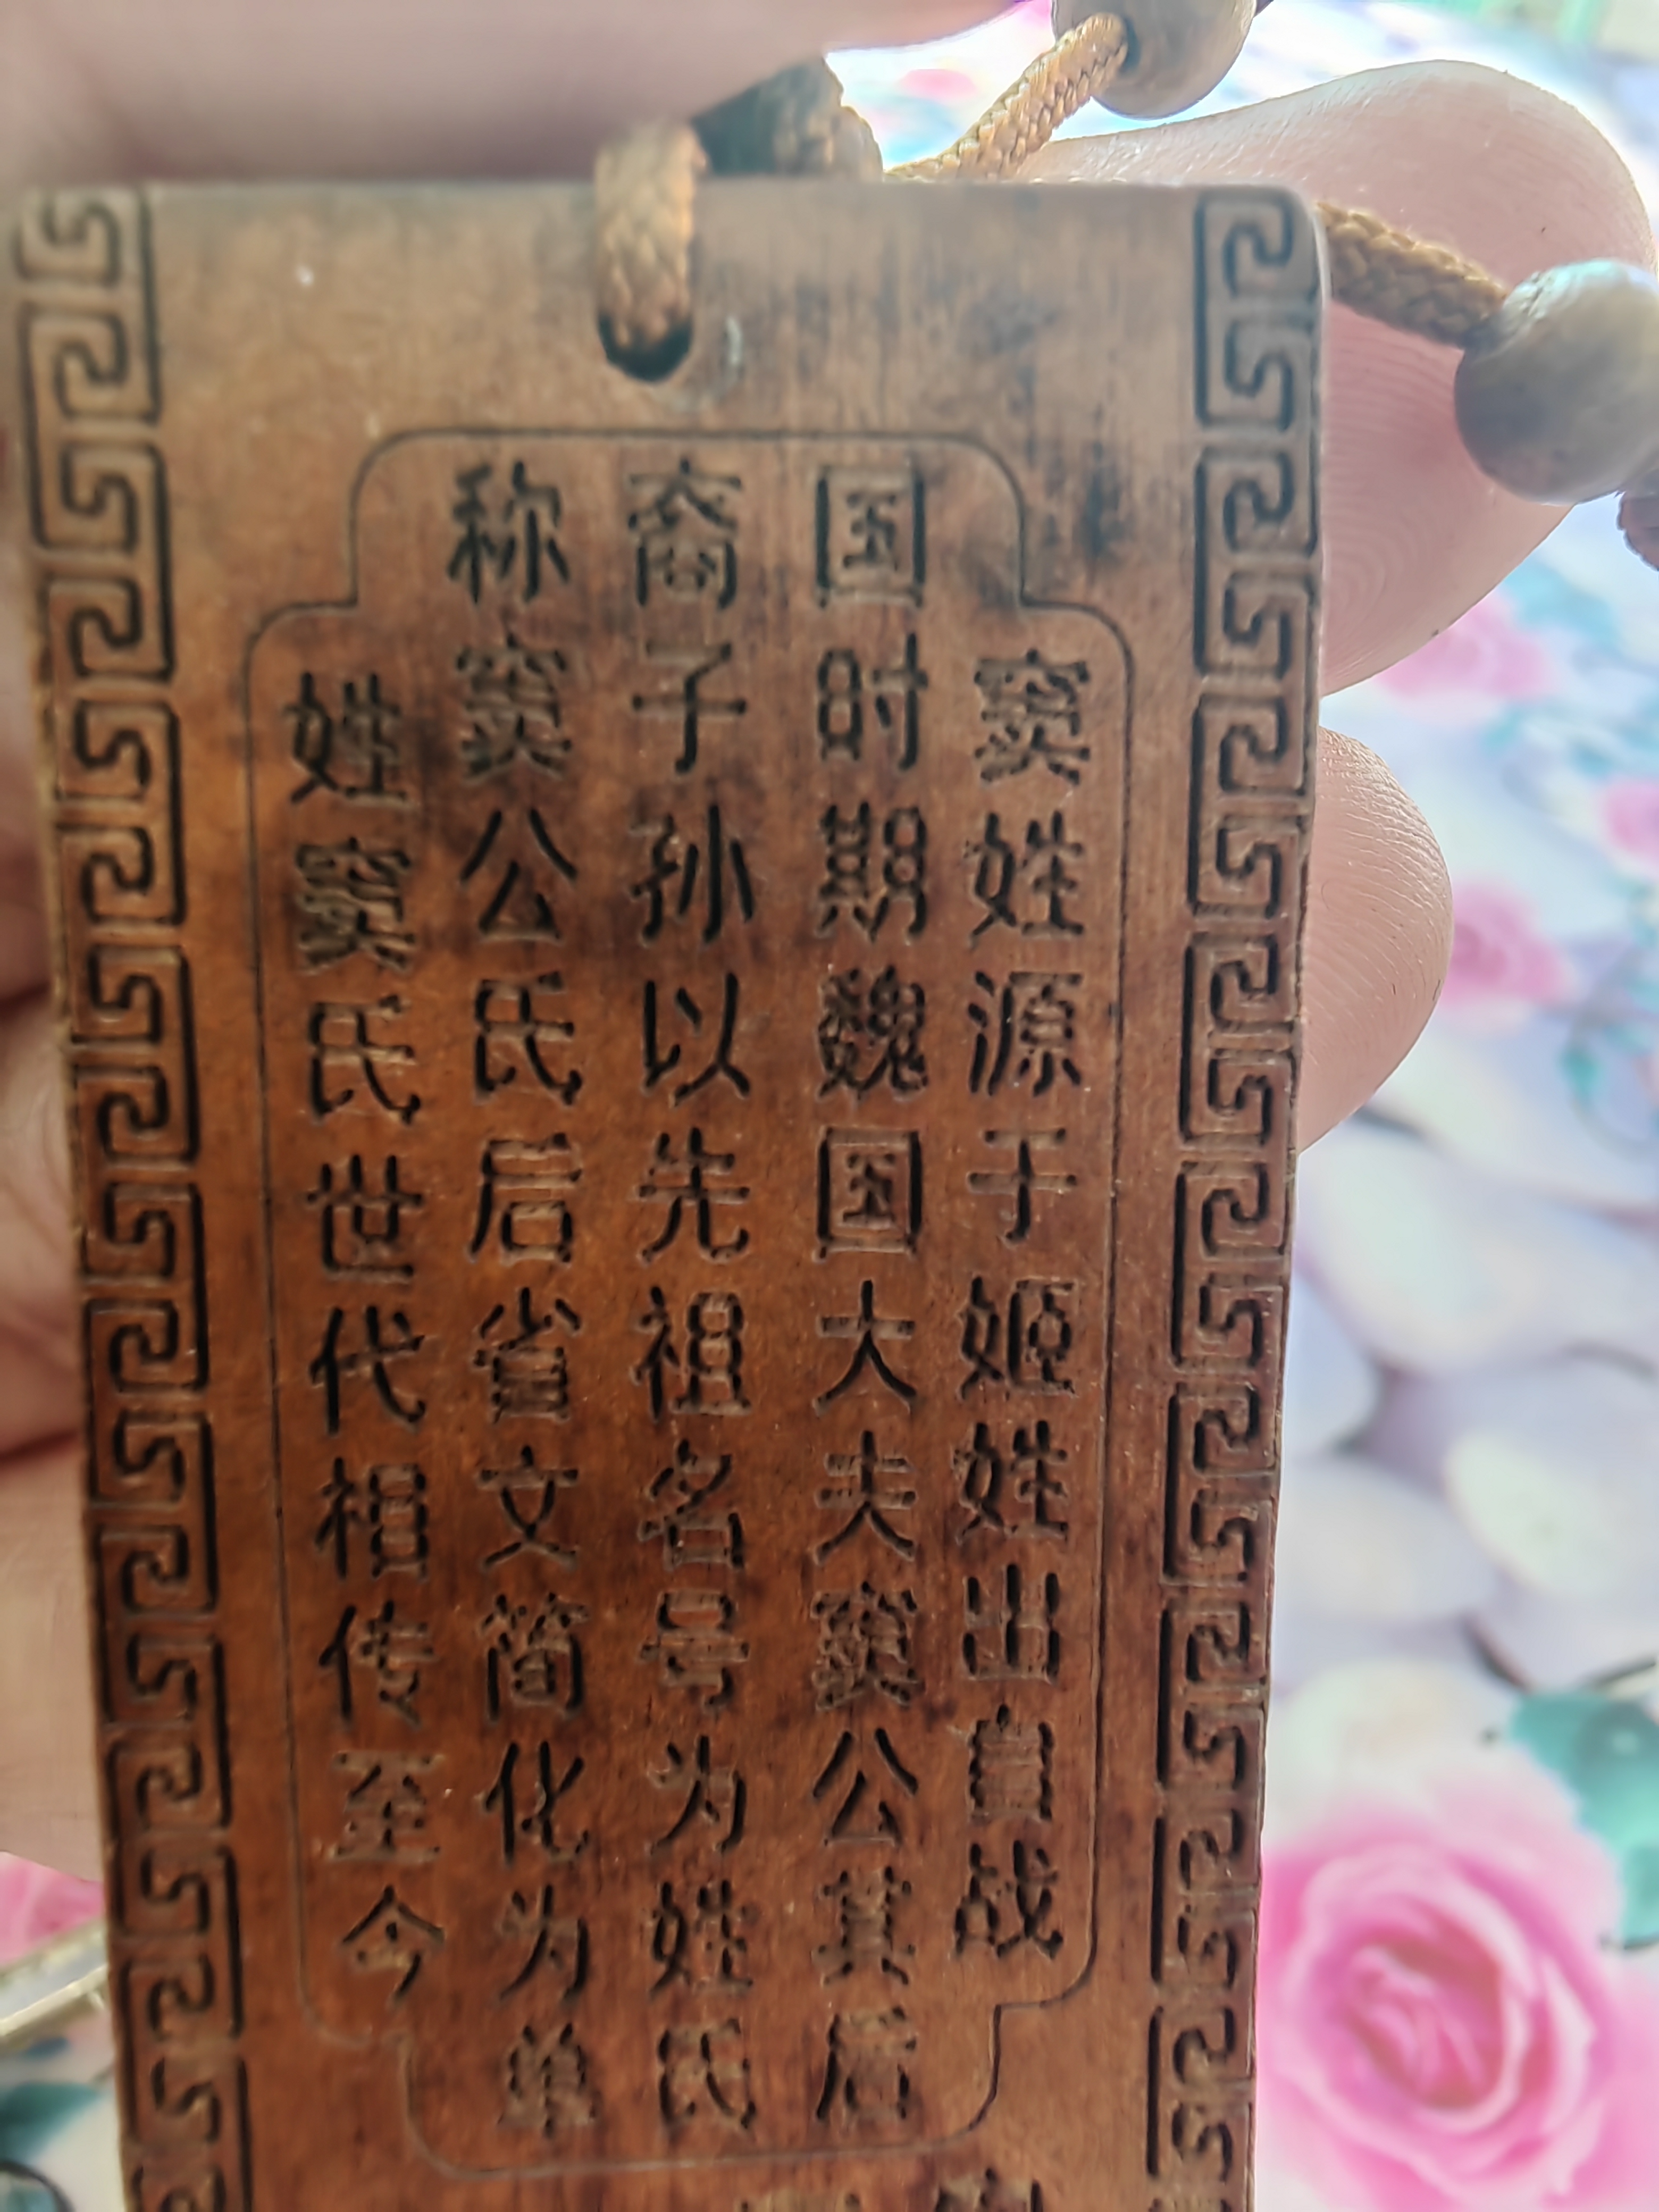 窦姓源于姬姓出自战
国时期魏国大夫窦公其后
裔子孙以先祖名号为姓氏
称窦公氏后省文简化为单
姓窦氏世代相传至今